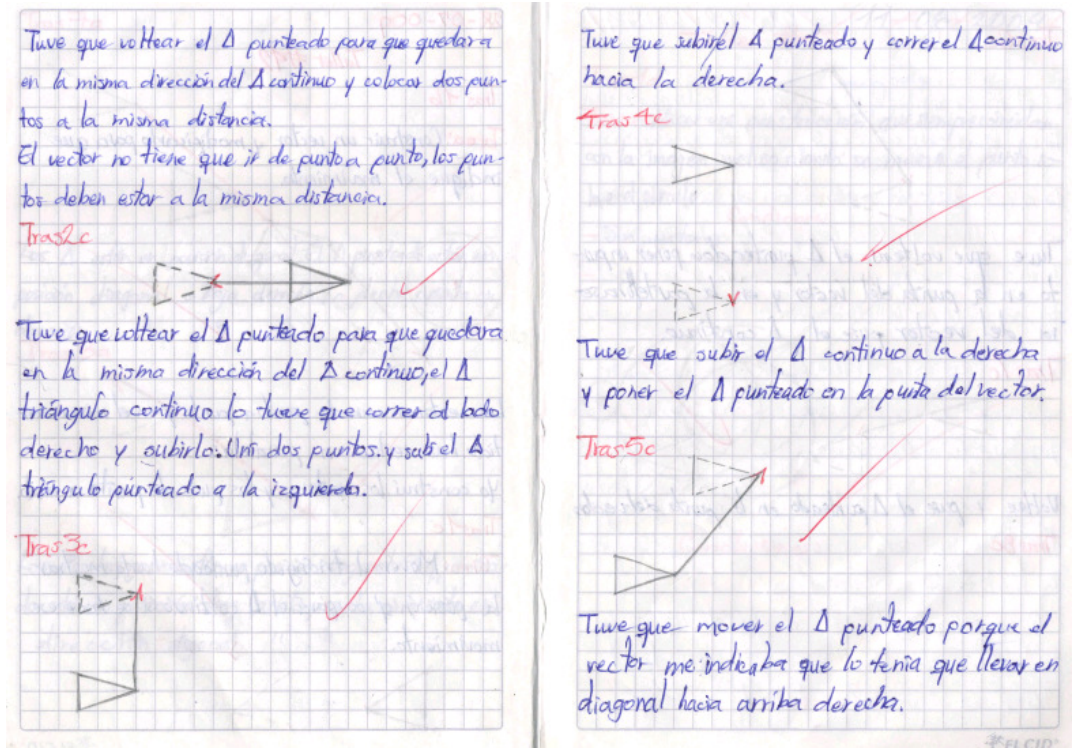 Tuve que voltear el Δ punteado para que quedara
en la misma dirección del Δ continuo y colocar dos pun-
tos a la misma distancia.
El vector no tiene que ir de punto a punto, los pun-
tos deben estar a la misma distancia.
Tras2c
Tuve que voltear el Δ punteado para que quedara
en la misma dirección del Δ continuo, el Δ
triángulo continuo lo tuve que correr al lado
derecho y subirlo. Uní dos puntos. y subi el Δ
triángulo punteado a la izquierda.
Tras3c
Tuve que subir el Δ punteado y correr el Δ continuo
hacia la derecha.
Tras4c
Tuve que subir el Δ continuo a la derecha
y poner el Δ punteado en la punta del vector.
Tras5c
Tuve que mover el Δ punteado porque el
vector me indicaba que lo tenía que llevar en
diagonal hacia arriba derecha.